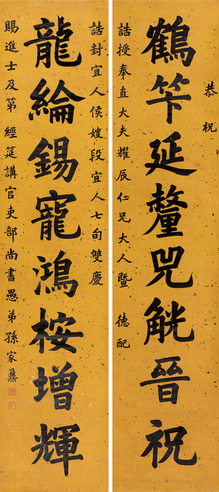 恭祝
鶴笇延釐兕觥晉祝
誥授奉直大夫耀辰仁兄大人暨 德配
誥封宜人侯嫂段宜人七旬雙慶
龍綸錫寵鴻桉增輝
賜進士及第經筵講官吏部尚書愚弟孫家鼐